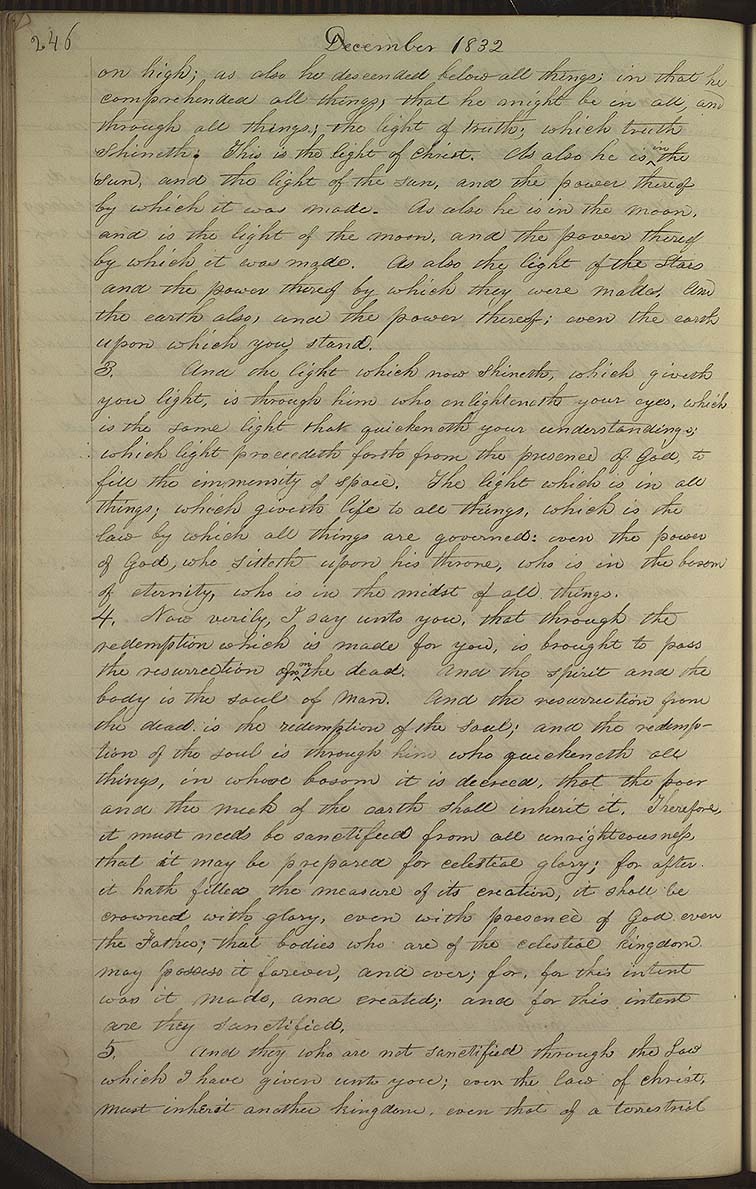 246
December 1832
on high; as also he descended below all things; in that he
comprehended all things, that he might be in all, and
through all things; the light of truth; which truth
shineth; This is the light of Christ. As also he is in the
sun, and the light of the sun, and the power therof
by which it was made. As also he is in the moon,
and is the light of the moon, and the power therof
by which it was made. As also the light of the Stars
and the power therof by which they were made. And
the earth also, and the power thereof; even the earth
upon which you stand.
3. And the light which now shineth, which giveth
you light, is through him who enlighteneth your eyes, which
is the same light that quickeneth your understandings;
which light proceedeth forth from the presence of God, to
fill the immensity of space. The light which is in all
things; which giveth life to all things, which is the
law by which all things are governed: even the power
of God, who sitteth upon his throne, who is in the bosom
of eternity, who is in the midst of all things.
4. Now verily, I say unto you, that through the
redemption which is made for you, is brought to pass
the resurrection from the dead. And the spirit and the
body is the soul of man. And the resurrection from
the dead is the redemption of the soul; and the redemp-
tion of the soul is through him who quickeneth all
things, in whose bosom it is decreed, that the poor
and the meek of the earth shall inherit it. Therefore,
it must needs be sanctified from all unrighteousness,
that it may be prepared for celestial glory; for after
it hath filled the measure of its creation, it shall be
crowned with glory, even with presence of God even
the Father; that bodies who are of the celestial kingdom
may possess it forever, and ever; for, for this intent
was it made, and created; and for this intent
are they sanctified.
5. And they who are not sanctified through the Law
which I have given unto you; even the law of christ,
must inherit another kingdom, even that of a terrestrial